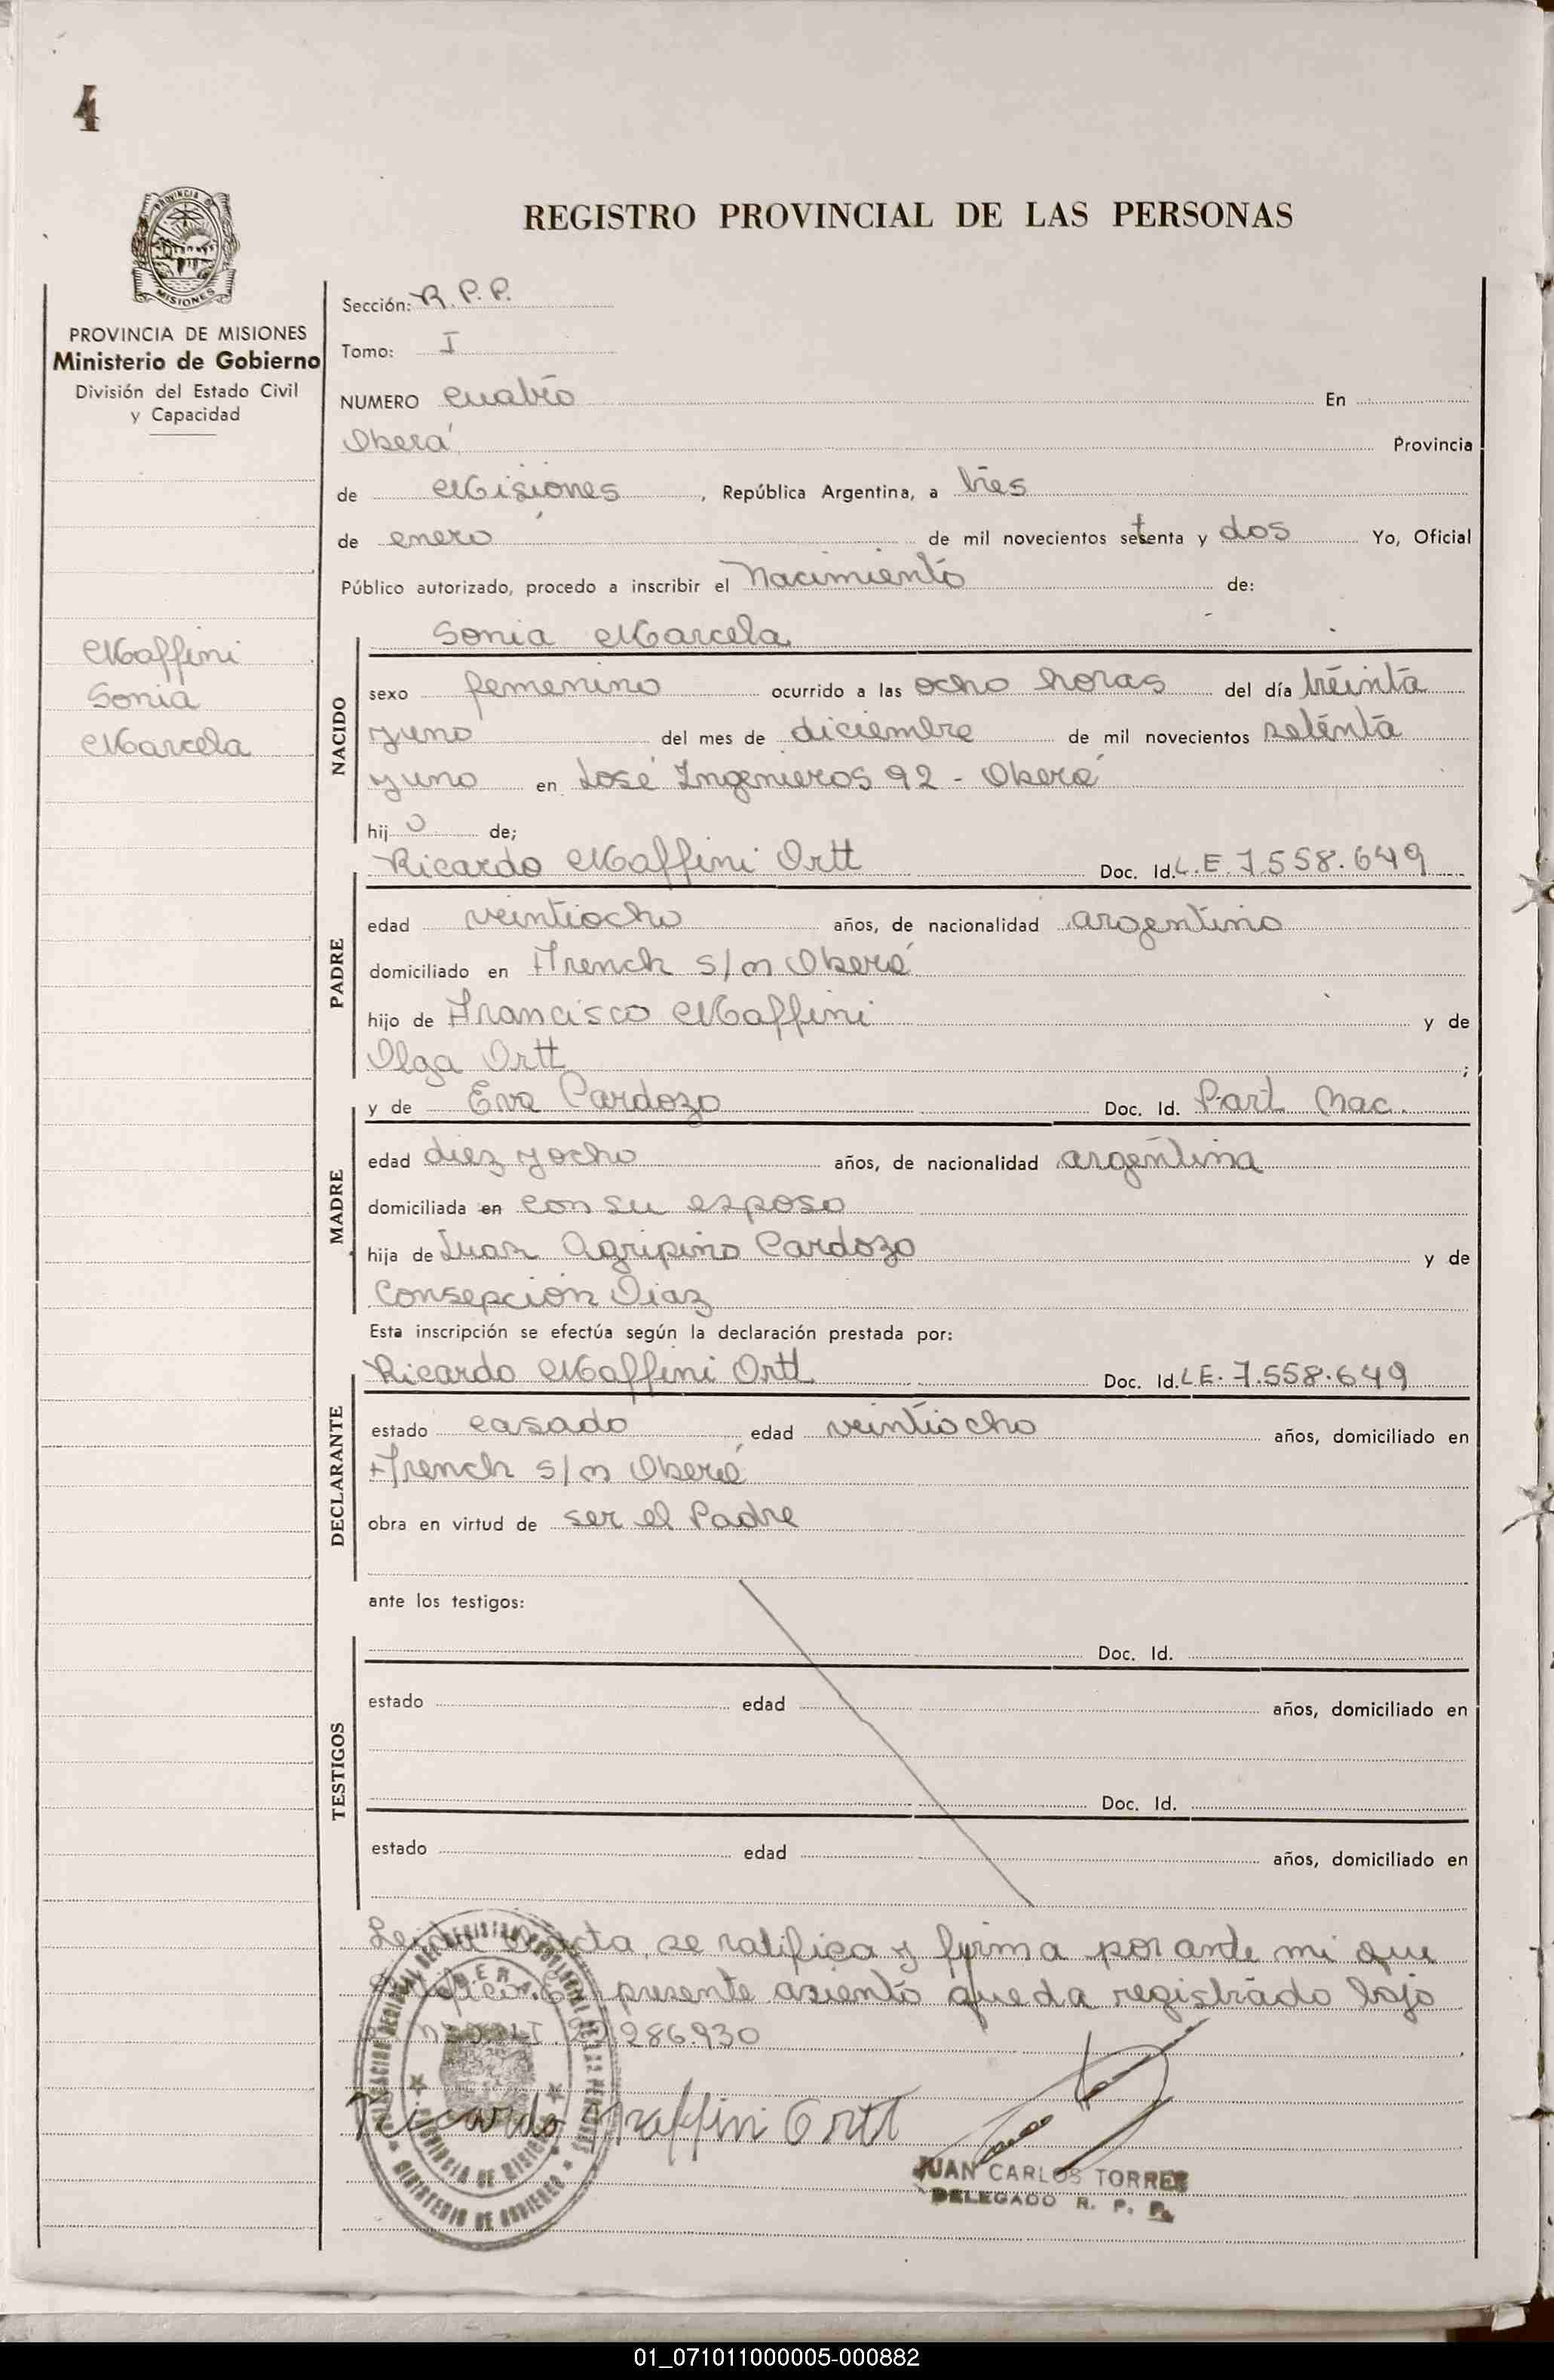 4
REGISTRO PROVINCIAL DE LAS PERSONAS
PROVINCIA DE MISIONES
Ministerio de Gobierno
División del Estado Civil
y Capacidad
Maffini
Sonia
Marcela
Sección: R. P. P.
Tomo: I
NUMERO cuatro En
Oberá Provincia
de Misiones, República Argentina, a tres
de enero de mil novecientos setenta y dos Yo, Oficial
Público autorizado, procedo a inscribir el Nacimiento de:
Sonia Marcela
NACIDO
sexo femenino ocurrido a las ocho horas del día treinta
y uno del mes de diciembre de mil novecientos setenta
y uno en José Ingenieros 92 - Oberá
hij o de;
Ricardo Maffini Ortt Doc. Id. L.E. 7.558.649
PADRE
edad veintiocho años, de nacionalidad argentino
domiciliado en French s/n Oberá
hijo de Francisco Maffini y de
Olga Ortt ;
y de Eva Cardozo Doc. Id. Part Nac.
MADRE
edad diez y ocho años, de nacionalidad argentina
domiciliada en con su esposo
hija de Juan Agripino Cardozo y de
Consepción Diaz
Esta inscripción se efectúa según la declaración prestada por:
Ricardo Maffini Ortt Doc. Id. LE. 7.558.649
DECLARANTE
estado casado edad veintiocho años, domiciliado en
French s/n Oberá
obra en virtud de ser el Padre
ante los testigos:
Doc. Id.
TESTIGOS
estado edad años, domiciliado en
Doc. Id.
estado edad años, domiciliado en
Leida acta, se ratifica y firma por ante mi que
presente asiento queda registrado bajo
286.930
Ricardo Maffini Ortt
JUAN CARLOS TORRES
DELEGADO R. P. P.
PROVINCIA DE MISIONES
MINISTERIO DE GOBIERNO
01_071011000005-000882